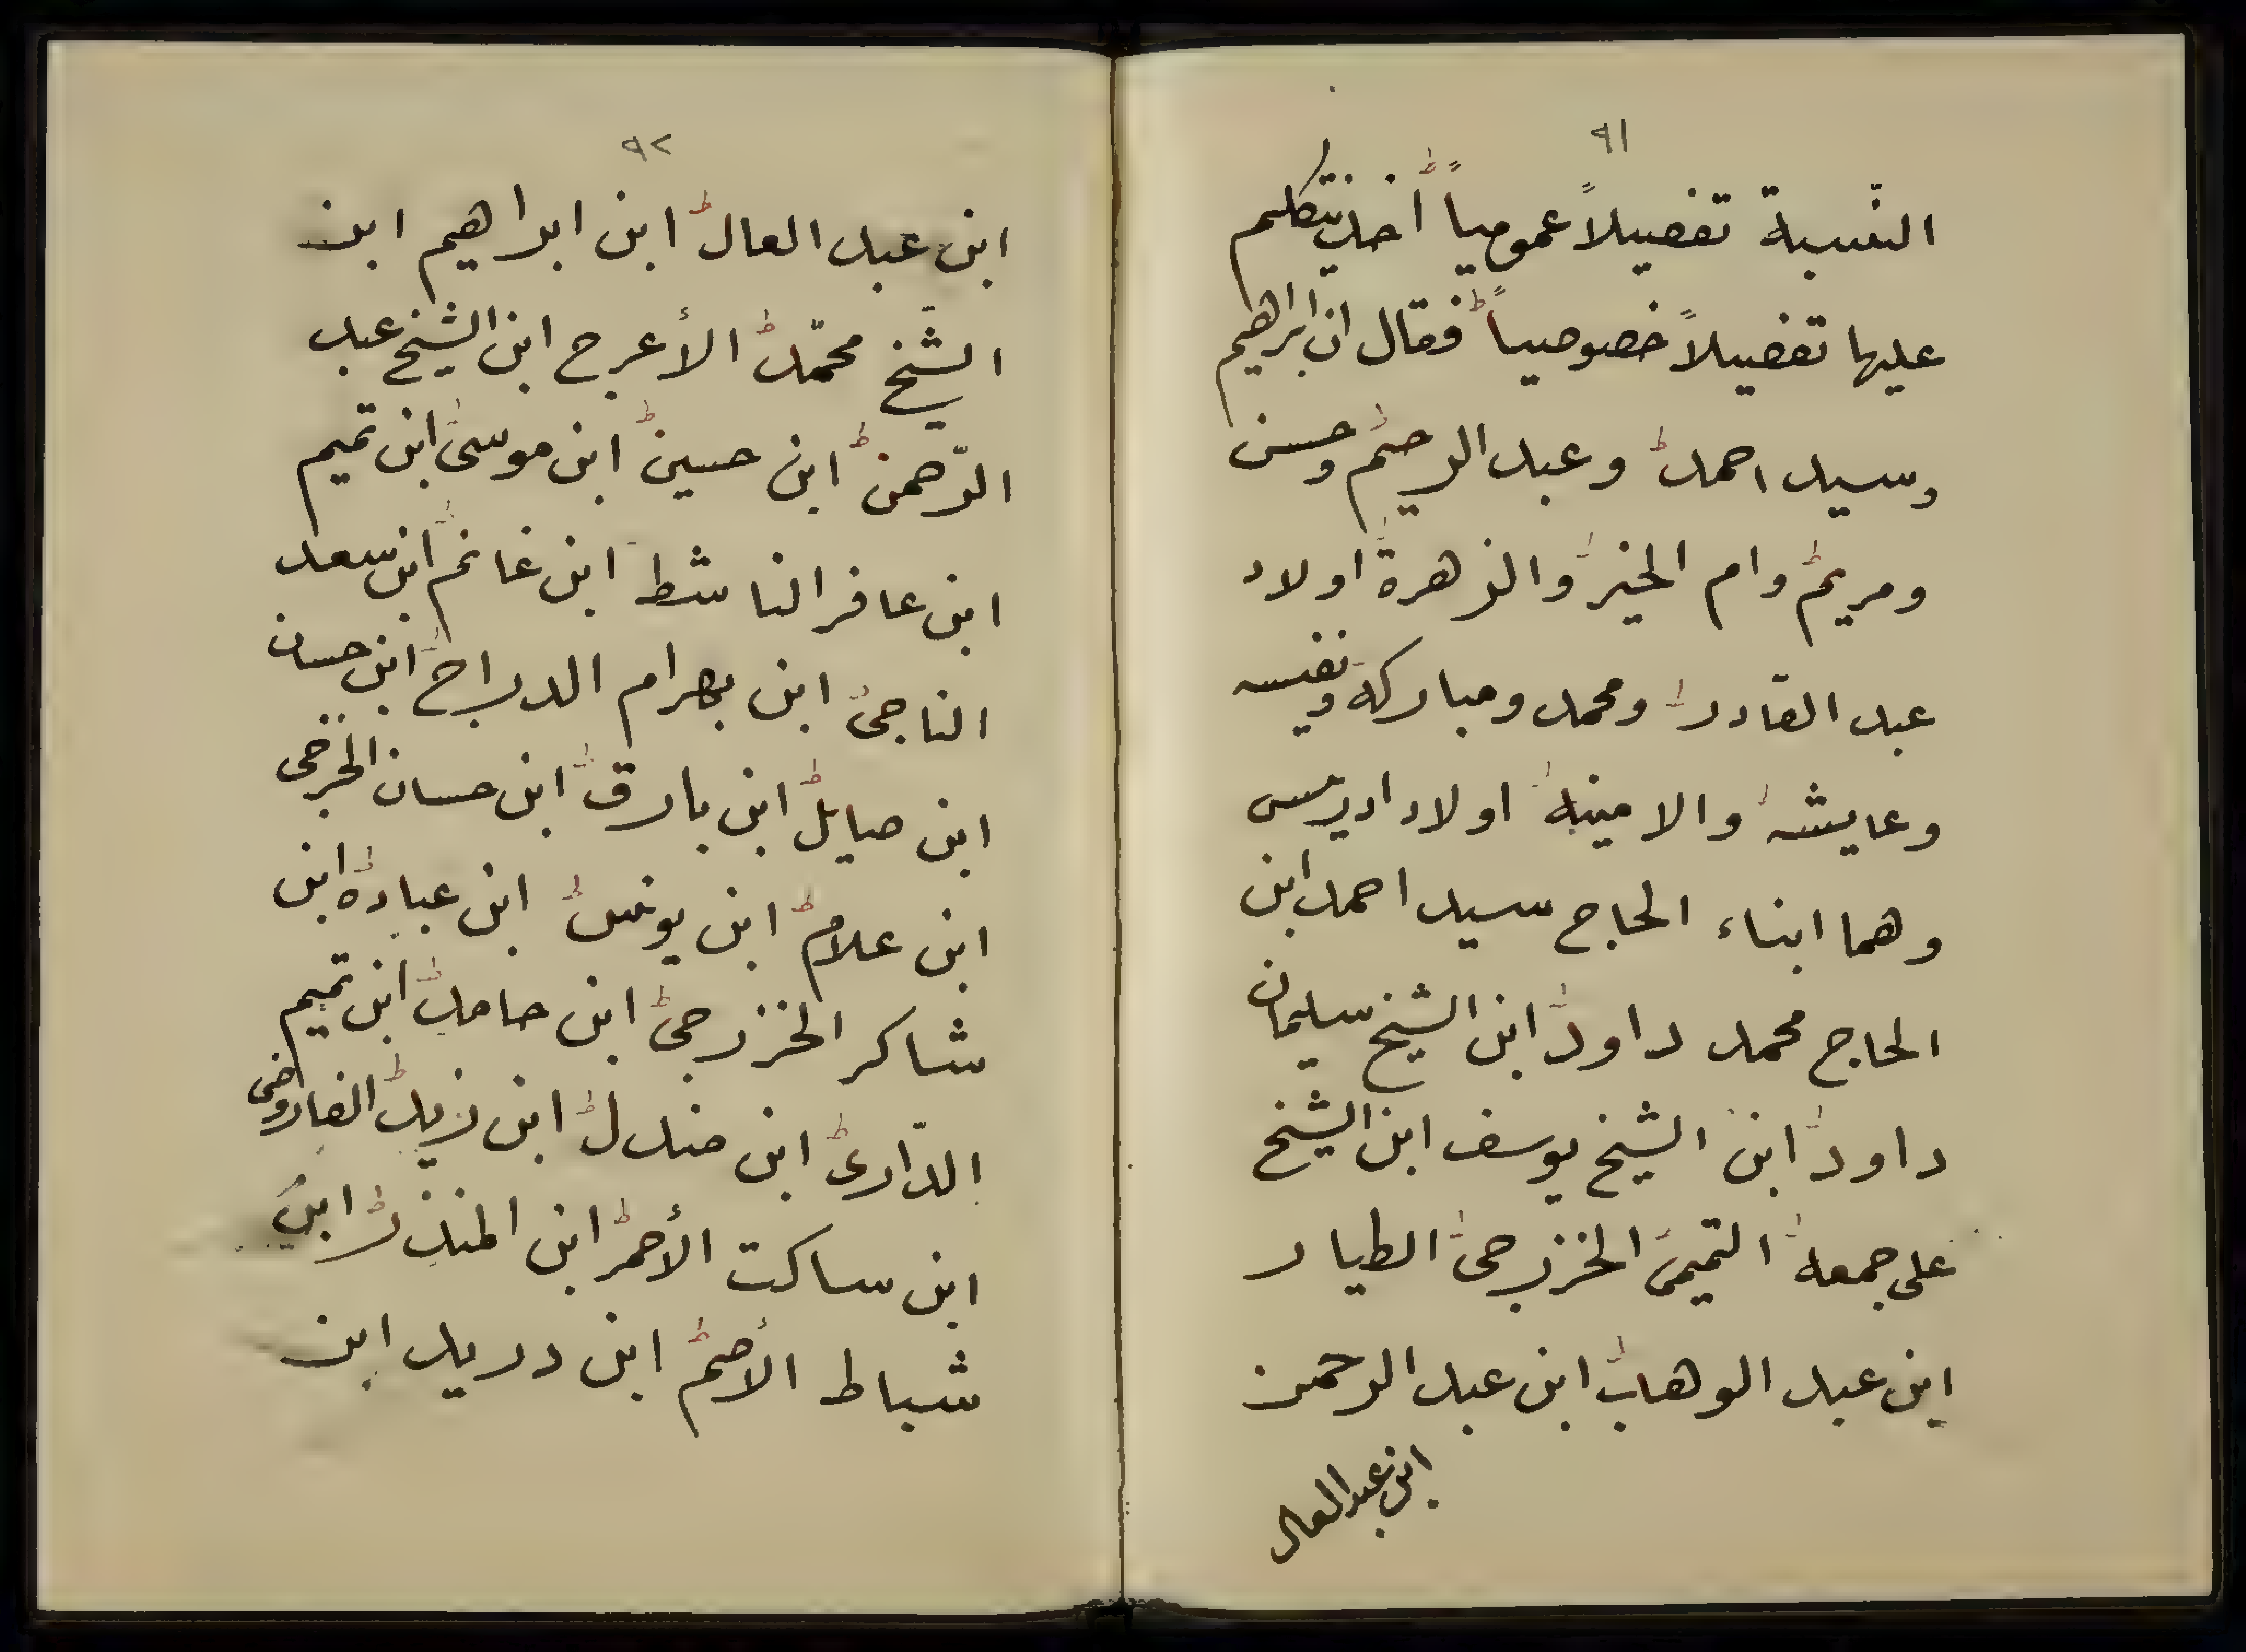 ٩١
النّسبة تفصيلاً عمومياً أخذ يتكلم
عليها تفصيلاً خصوصياً فقال ان ابراهيم
وسيد احمد وعبد الرحيم وحسن
ومريم وام الخير والزهرة اولاد
عبد القادر ومحمد ومباركه ونفيسه
وعايشه والامينه اولاد ادريس
وهما ابناء الحاج سيد احمد ابن
الحاج محمد داود ابن الشيخ سليمان
داود ابن الشيخ يوسف ابن الشيخ
على جمعه التميمى الخزرجى الطيار
ابن عبد الوهاب ابن عبد الرحمن
ابن عبد العال
٩٢
ابن عبد العال ابن ابراهيم ابن
الشّيخ محمّد الأعرج ابن الشيخ عبد
الرّحمن ابن حسين ابن موسى ابن تميم
ابن عافر الناشط ابن غانم ابن سعد
الناجى ابن بهرام الدراج ابن حسان
ابن صايل ابن بارق ابن حسان الخزرجى
ابن علام ابن يونس ابن عباده ابن
شاكر الخزرجى ابن حامد ابن تميم
الدّارى ابن مندل ابن زيد
ابن ساكت الأحمر ابن المنذر ابن
شباط الأصم ابن دريد ابن